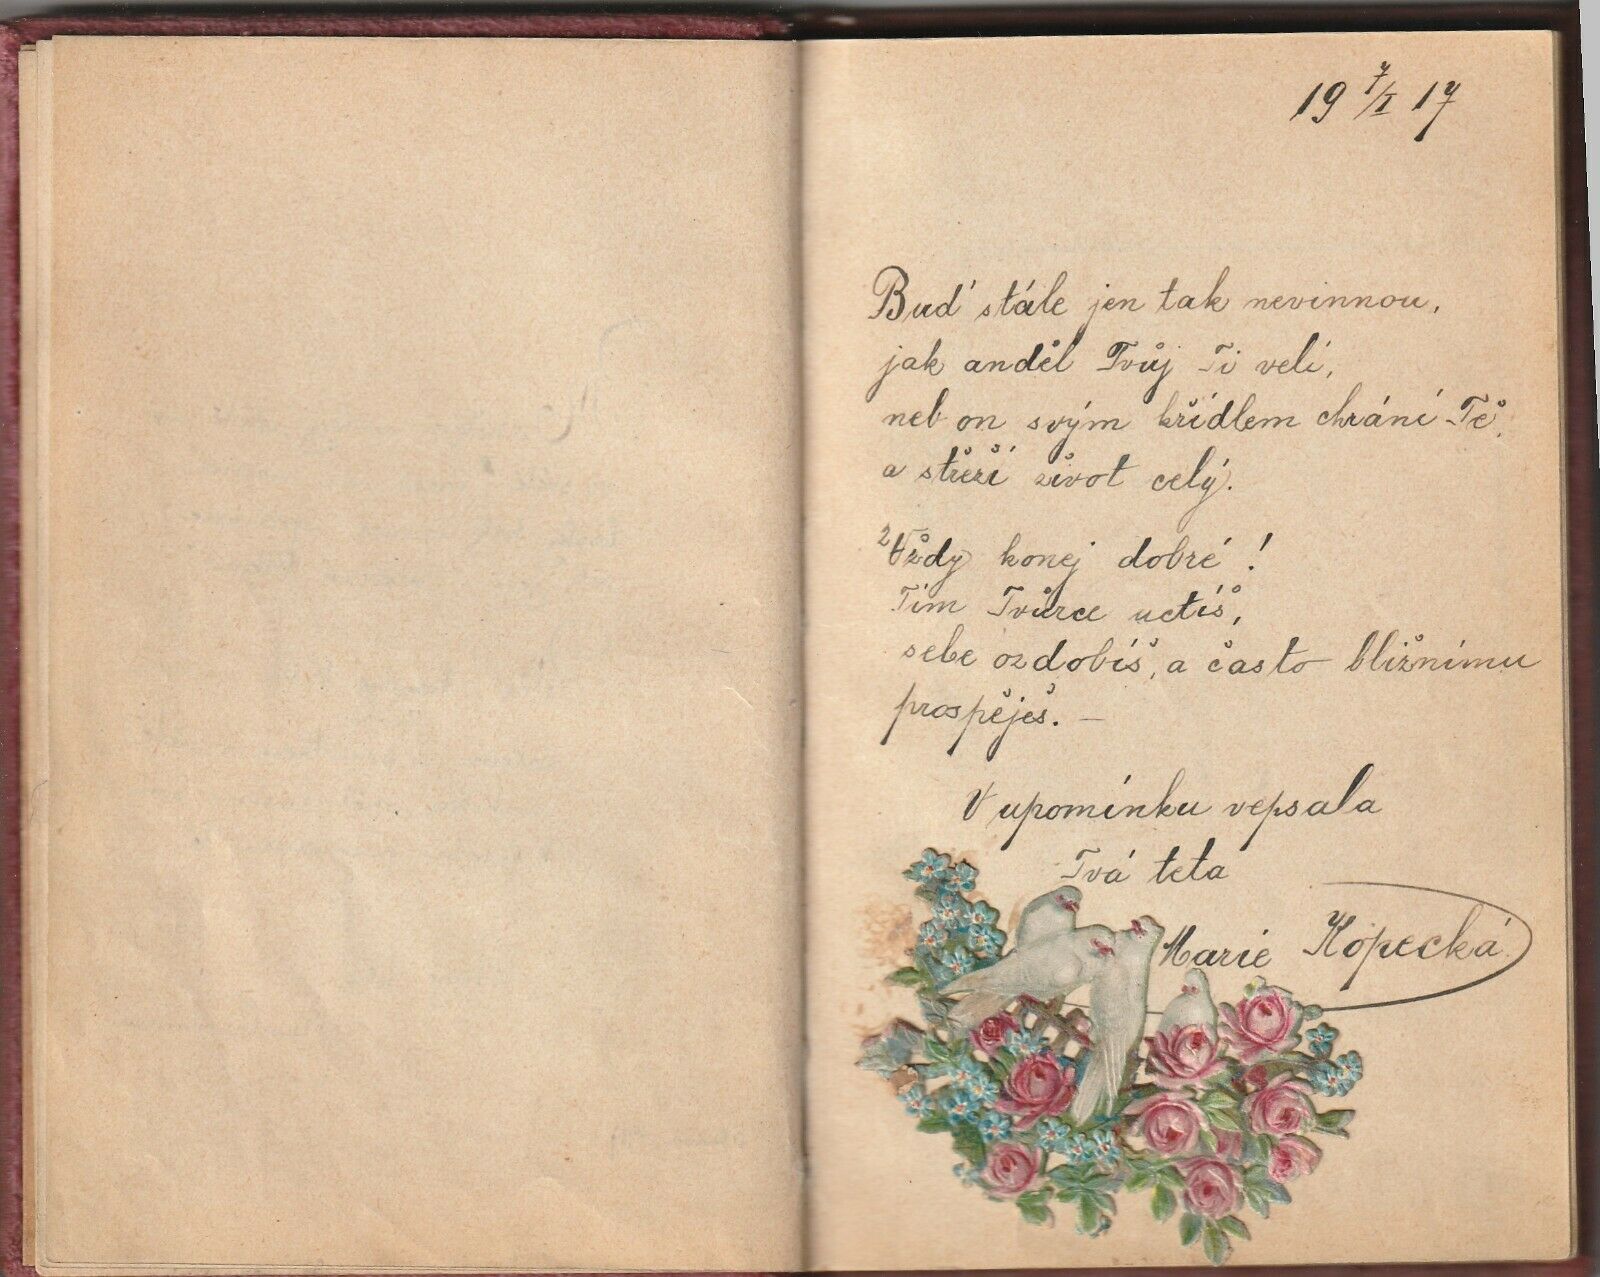 19 7/I 17
Buď stále jen tak nevinnou,
jak anděl Tvůj Ti velí,
neb on svým křídlem chrání Tě,
a střeží život celý.
2 Vždy konej dobré!
Tím Tvůrce uctíš,
sebe ozdobíš, a často bližnímu
prospěješ. —
V upomínku vepsala
Tvá teta
Marie Kopecká